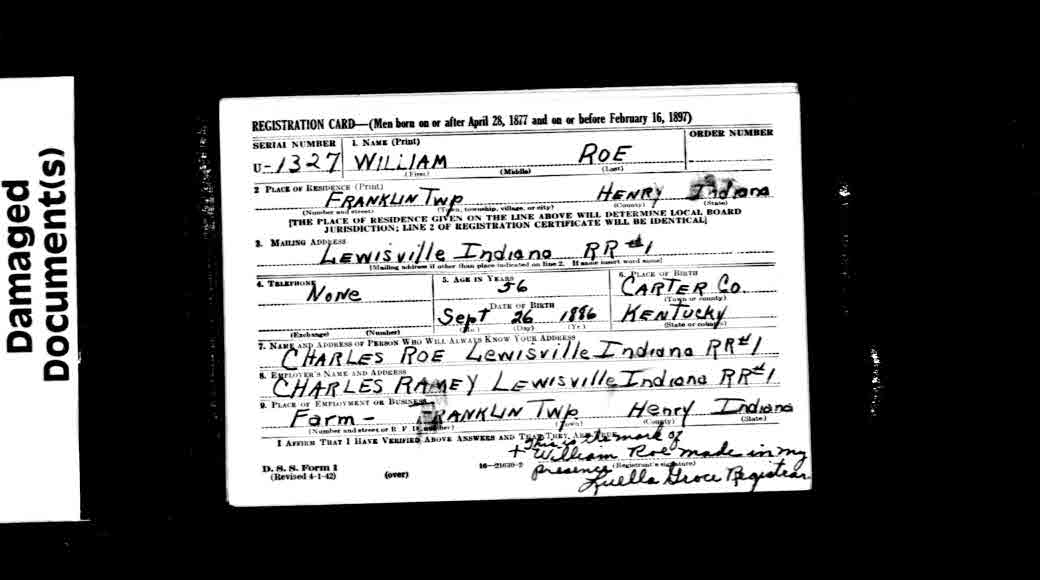 Damaged
Document(s)
REGISTRATION CARD—(Men born on or after April 28, 1877 and on or before February 16, 1897)
SERIAL NUMBER 1. NAME (Print) ORDER NUMBER
U-1327 WILLIAM ROE
(First) (Middle) (Last)
2 PLACE OF RESIDENCE (Print)
FRANKLIN Twp HENRY Indiana
(Number and street) (Town, township, village, or city) (County) (State)
[THE PLACE OF RESIDENCE GIVEN ON THE LINE ABOVE WILL DETERMINE LOCAL BOARD
JURISDICTION; LINE 2 OF REGISTRATION CERTIFICATE WILL BE IDENTICAL]
3. MAILING ADDRESS
LEWISVille Indiana RR #1
[Mailing address if other than place indicated on line 2. If same insert word same]
4. TELEPHONE 5. AGE IN YEARS 6. PLACE OF BIRTH
None 56 CARTER CO.
DATE OF BIRTH (Town or county)
Sept 26 1886 KENTUCKY
(Exchange) (Number) (Mo.) (Day) (Yr.) (State or country)
7. NAME AND ADDRESS OF PERSON WHO WILL ALWAYS KNOW YOUR ADDRESS
CHARLES ROE Lewisville Indiana RR#1
8. EMPLOYER'S NAME AND ADDRESS
CHARLES RAMEY LEWISVille Indiana RR#1
9. PLACE OF EMPLOYMENT OR BUSINESS
Farm - FRANKLIN Twp Henry Indiana
(Number and street or R. F. D. number) (Town) (County) (State)
I AFFIRM THAT I HAVE VERIFIED ABOVE ANSWERS AND THAT THEY ARE TRUE.
This is the mark of
+ William Roe made in my
presence
D. S. S. Form 1 16—21630-2 (Registrant's signature)
(Revised 4-1-42) (over) Luella Groce Registrar